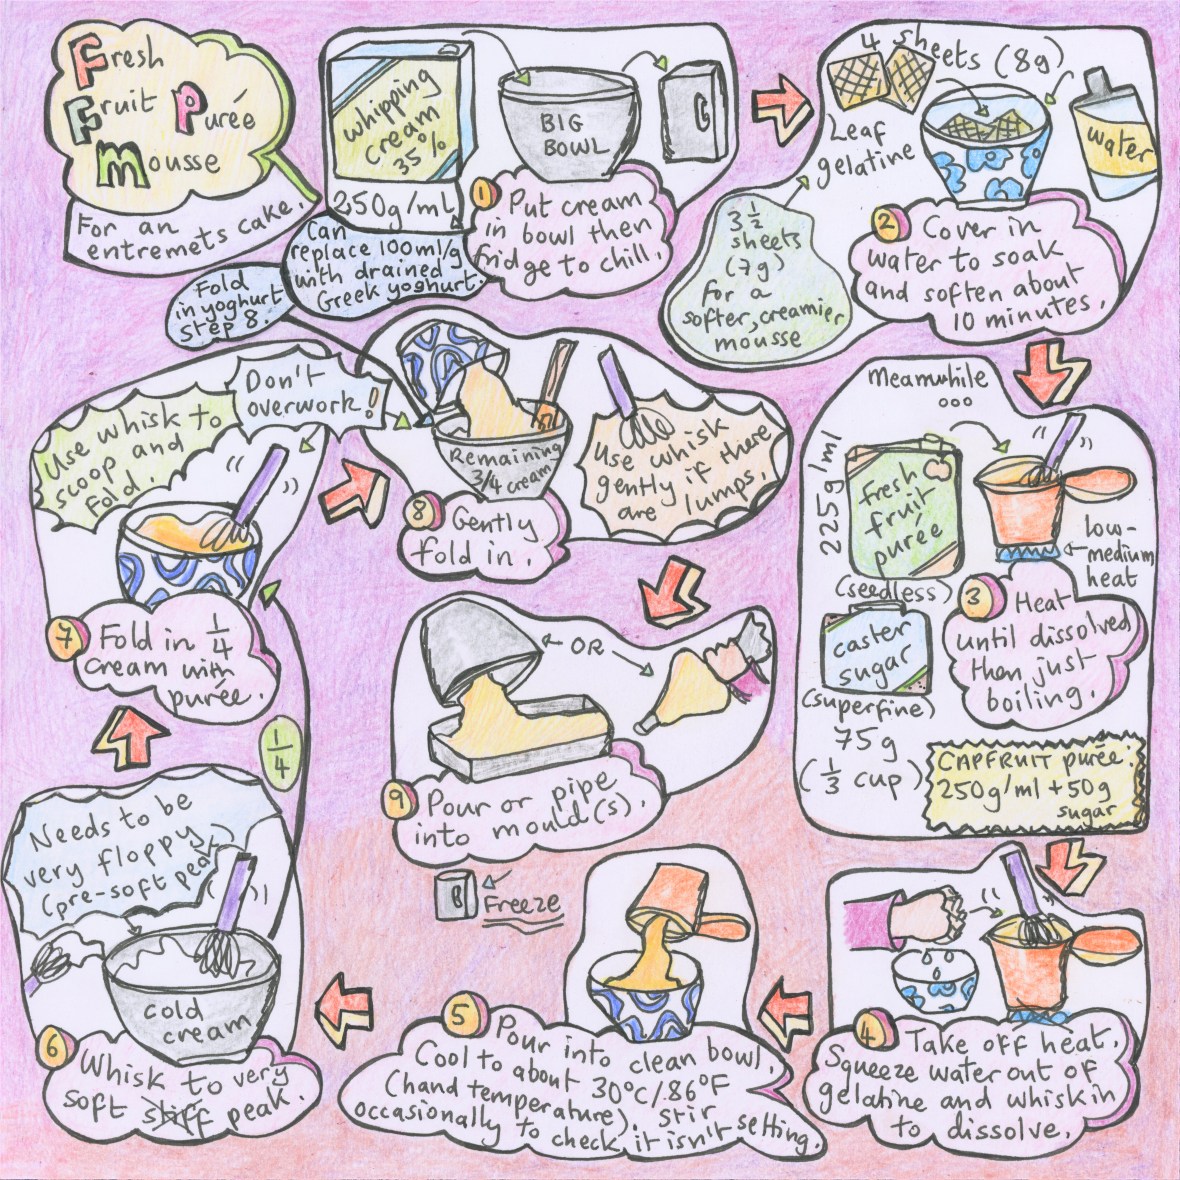 Fresh
Fruit Purée
Mousse
For an
entremets cake.
whipping
cream
35%
250g/mL
BIG
BOWL
1 Put cream
in bowl then
fridge to chill.
Can
replace 100ml/g
with drained
Greek yoghurt.
Fold
in yoghurt
step 8.
4 sheets (8g)
Leaf
gelatine
water
2 Cover in
water to soak
and soften about
10 minutes.
3 1/2
sheets
(7g)
for a
softer, creamier
mousse
Meanwhile
ooo
225g/ml
fresh
fruit
purée
(seedless)
low-
medium
heat
caster
sugar
(superfine)
75g
(1/3 cup)
3 Heat
until dissolved
then just
boiling.
CAPFRUIT purée:
250g/ml + 50g
sugar
4 Take off heat.
Squeeze water out of
gelatine and whisk in
to dissolve.
5 Pour into clean bowl.
Cool to about 30°C/86°F
(hand temperature). Stir
occasionally to check it isn't setting.
Needs to be
very floppy
(pre-soft peak)
cold
cream
6 Whisk to very
soft stiff peak.
1/4
Use whisk to
scoop and
fold.
Don't
overwork!
7 Fold in 1/4
cream with
purée.
Remaining
3/4 cream
8 Gently
fold in.
Use whisk
gently if there
are lumps.
OR
9 Pour or pipe
into mould(s).
Freeze